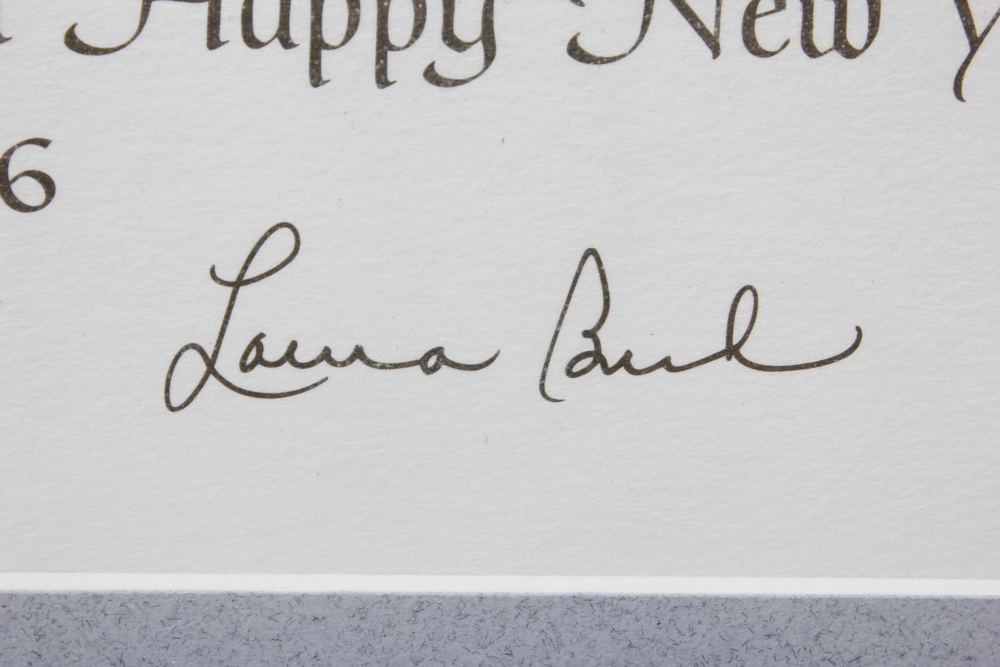 Happy New Y
6
Laura Bush